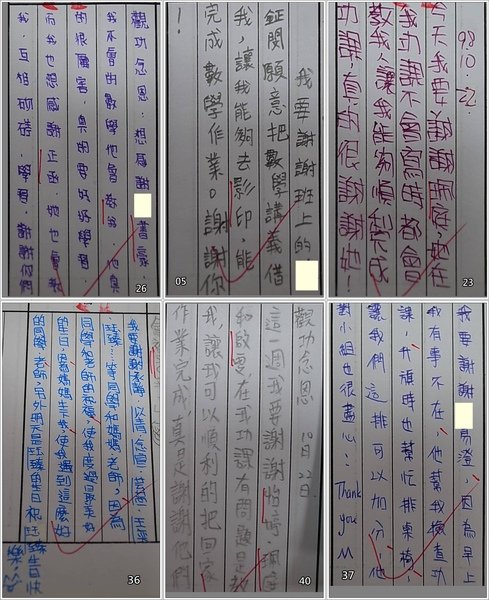 觀功念恩：想感謝書豪
我不會的數學他會教我，他真
的很厲害，真的要好好學習
而我也想感謝正函，她也會教
我，互相切磋、學習，謝謝你們
26
我要謝謝班上的
鈺閔願意把數學講義借
我，讓我能夠去影印，能
完成數學作業。謝謝你
！
05
98.10.22.
今天我要謝謝珮庭，她在
我功課不會寫時都會
教我，讓我能夠順利完成
功課，真的很謝謝她！
23
我要謝謝承諭、以青、念恒、
等同學和媽媽、老師，因為
同學和老師的祝福，使我度過最美好
的生日，因為媽媽生了我，使我遇到這麼好
的同學、老師，另外明天是生日，祝生日快
樂！
36
觀功念恩 10月22日
這一週我要謝謝怡 珮庭
和 在我功課有問題是教
我，讓我可以順利的把回家
作業完成，真是謝謝他們
40
我要謝謝易澄，因為早上
我有事不在，他幫我檢查功
課，升旗時也幫忙排桌椅，
讓我們這排可以加分，他
對小組也很盡心：Thank
you
37